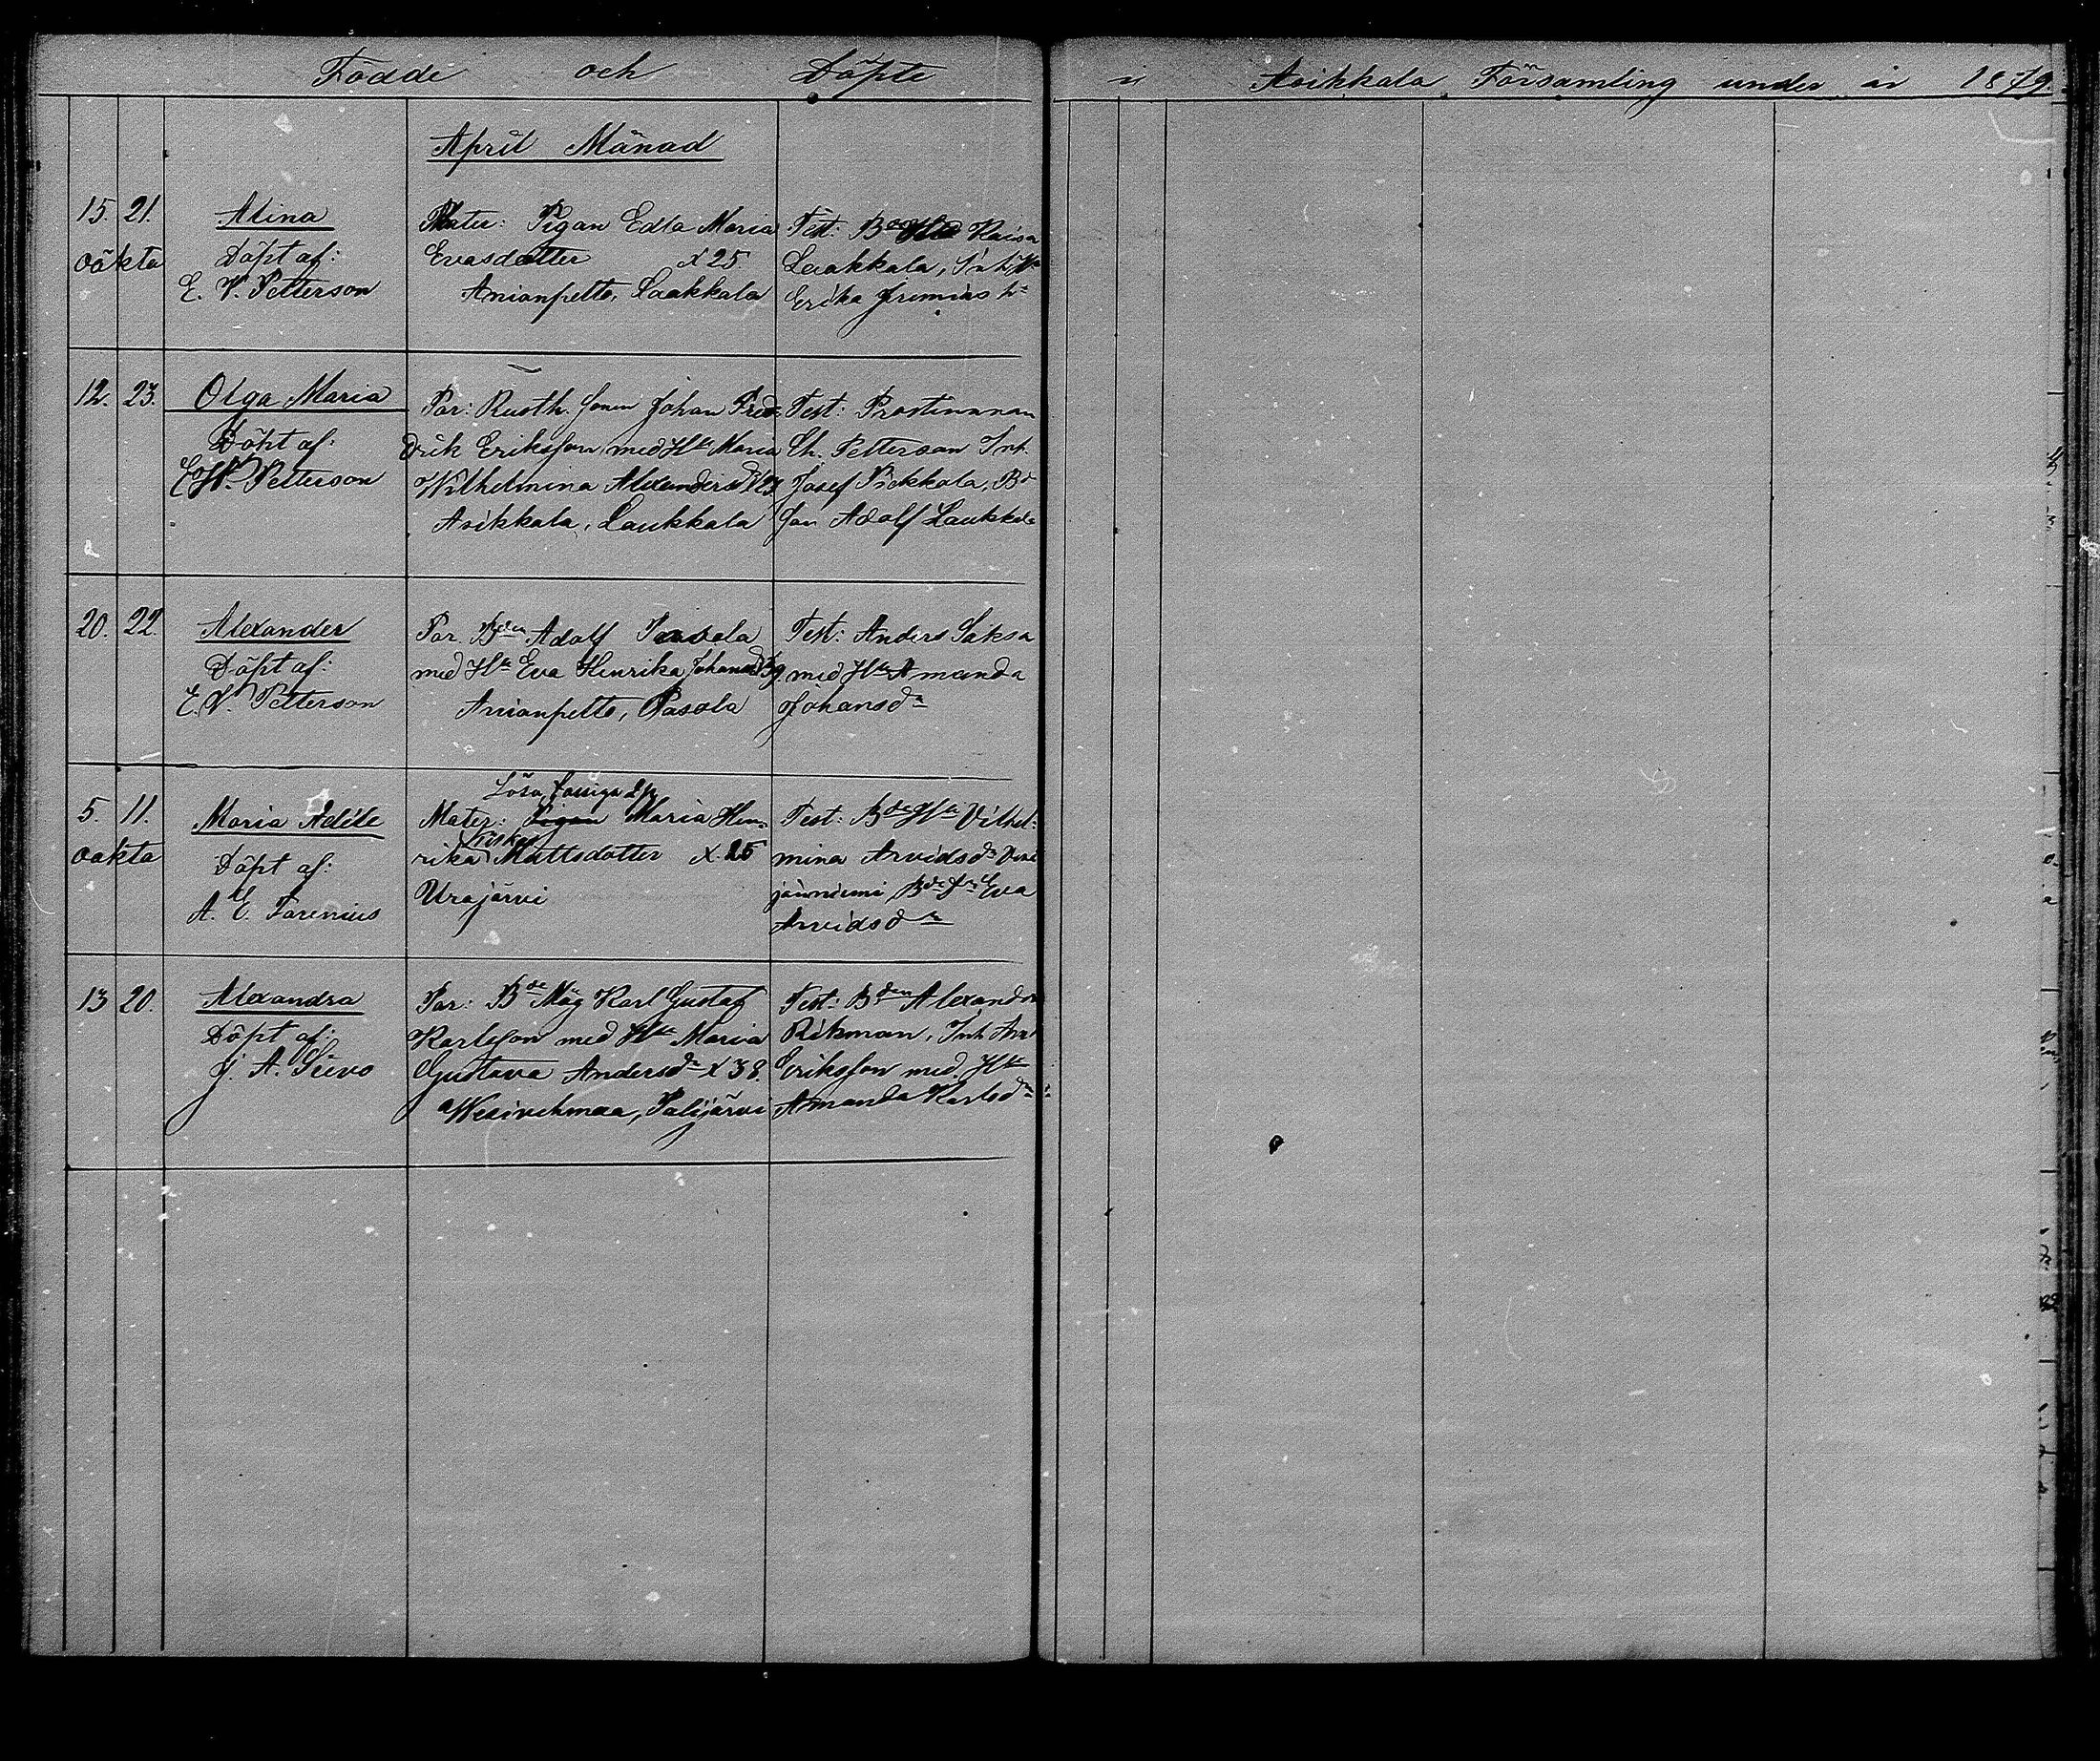 Födde och Döpte i Asikkala Församling under år 1879.
April Månad
15. 21.
oäkta
Alina
Döpt af:
E. V. Petterson
Mater: Pigan Edla Maria
Evasdotter x 25.
Anianpelto, Laakkala
Test: Kaisa
Laakkala, Inh
Erika Jeremias
12. 23.
Olga Maria
Döpt af:
E. W. Petterson
Par: Rusth. Sonen Johan Fred-
drik Eriksson med Hu Maria
Wilhelmina Alexandersd
Asikkala, Laukkala
Test: Prostinnan
Ch. Petterson Inh.
Josef Pickkala, Bd
Jon Adolf Laukkala
20. 22.
Alexander
Döpt af:
E. V. Petterson
Par. Bden Adolf
med Hu Eva Henrika Johansd 39
Anianpelto, Pasola
Test: Anders Saksa
med Hu Amanda
Johansdr
5. 11.
oäkta
Maria Adéle
Döpt af:
A. E. Forenius
Lösa
Mater: Pigan Maria Hen-
rika Mattsdotter x. 25
Urajärvi
Test: Bde Hu Vilhel-
mina Arvidsdr
Eva
Arvidsdr
13 20.
Alexandra
Döpt af:
J. A. Siivo
Par: Bde Måg Karl Gustaf
Karlsson med Hu Maria
Gustava Andersdr x 38.
Wesivehmaa, Palijärvi
Test: Bden Alexander
Rikman, Inh
Eriksson med Hu
Amanda Karlsdr